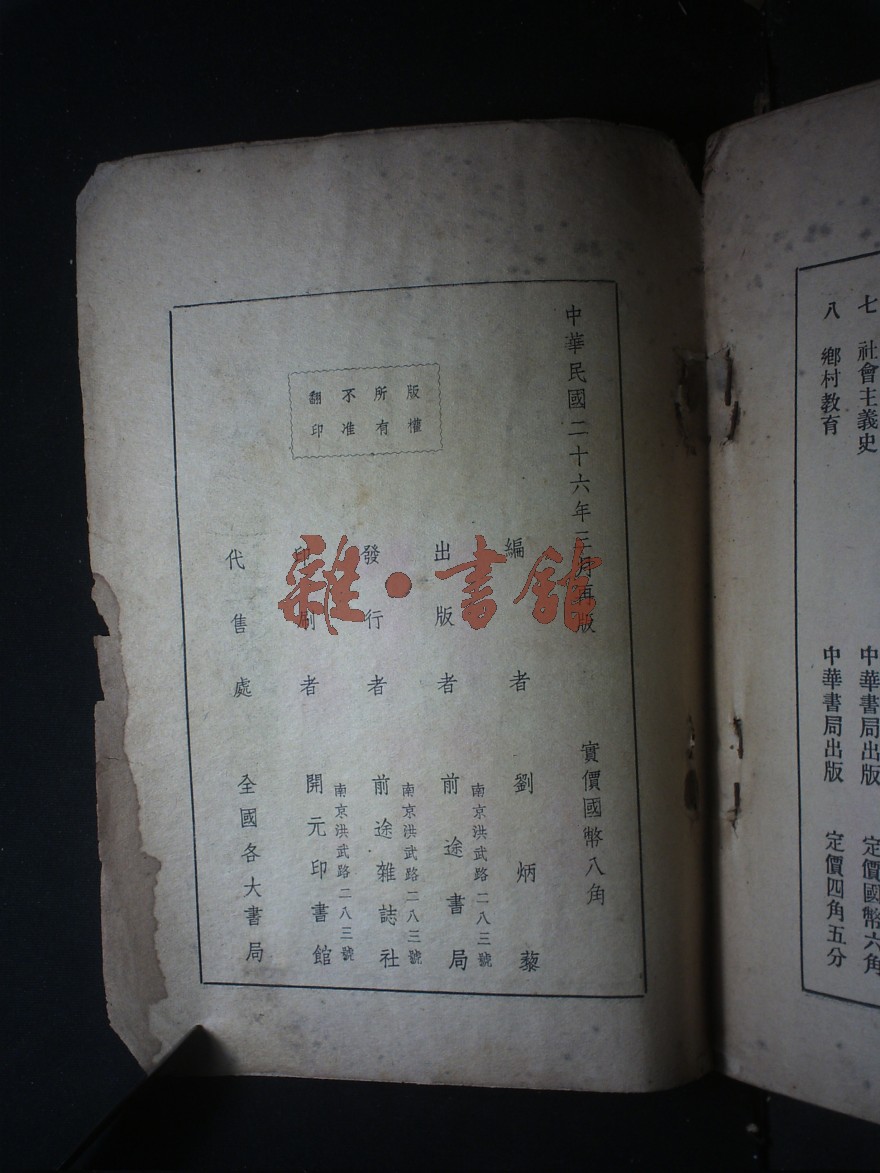 七 社會主義史 中華書局出版 定價國幣六角
八 鄉村教育 中華書局出版 定價四角五分
中華民國二十六年三月再版 實價國幣八角
版權
所有
不准
翻印
編者 劉炳藜
南京洪武路二八三號
出版者 前途書局
南京洪武路二八三號
發行者 前途雜誌社
南京洪武路二八三號
印刷者 開元印書館
代售處 全國各大書局
雜·書館